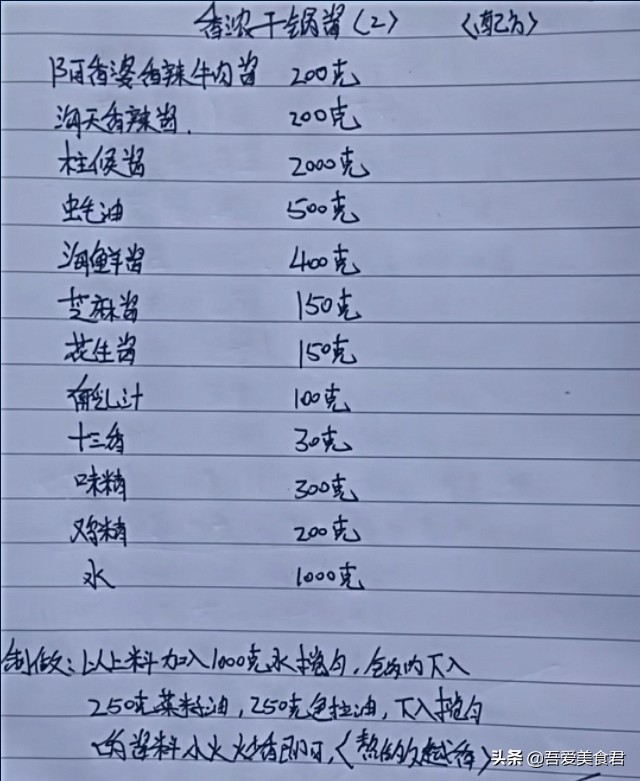 香浓干锅酱(2) (配方)
陌香婆香辣牛肉酱 200克
海天香辣酱. 200克
柱候酱 2000克
蚝油 500克
海鲜酱 400克
芝麻酱 150克
花生酱 150克
腐乳汁 100克
十三香 30克
味精 300克
鸡精 200克
水 1000克
制做:以上料加入1000克水搅匀,锅内下入
250克菜籽油,250克色拉油,下入搅匀
的酱料小火炒香即可,(熬的久越香)
头条 @吾爱美食君